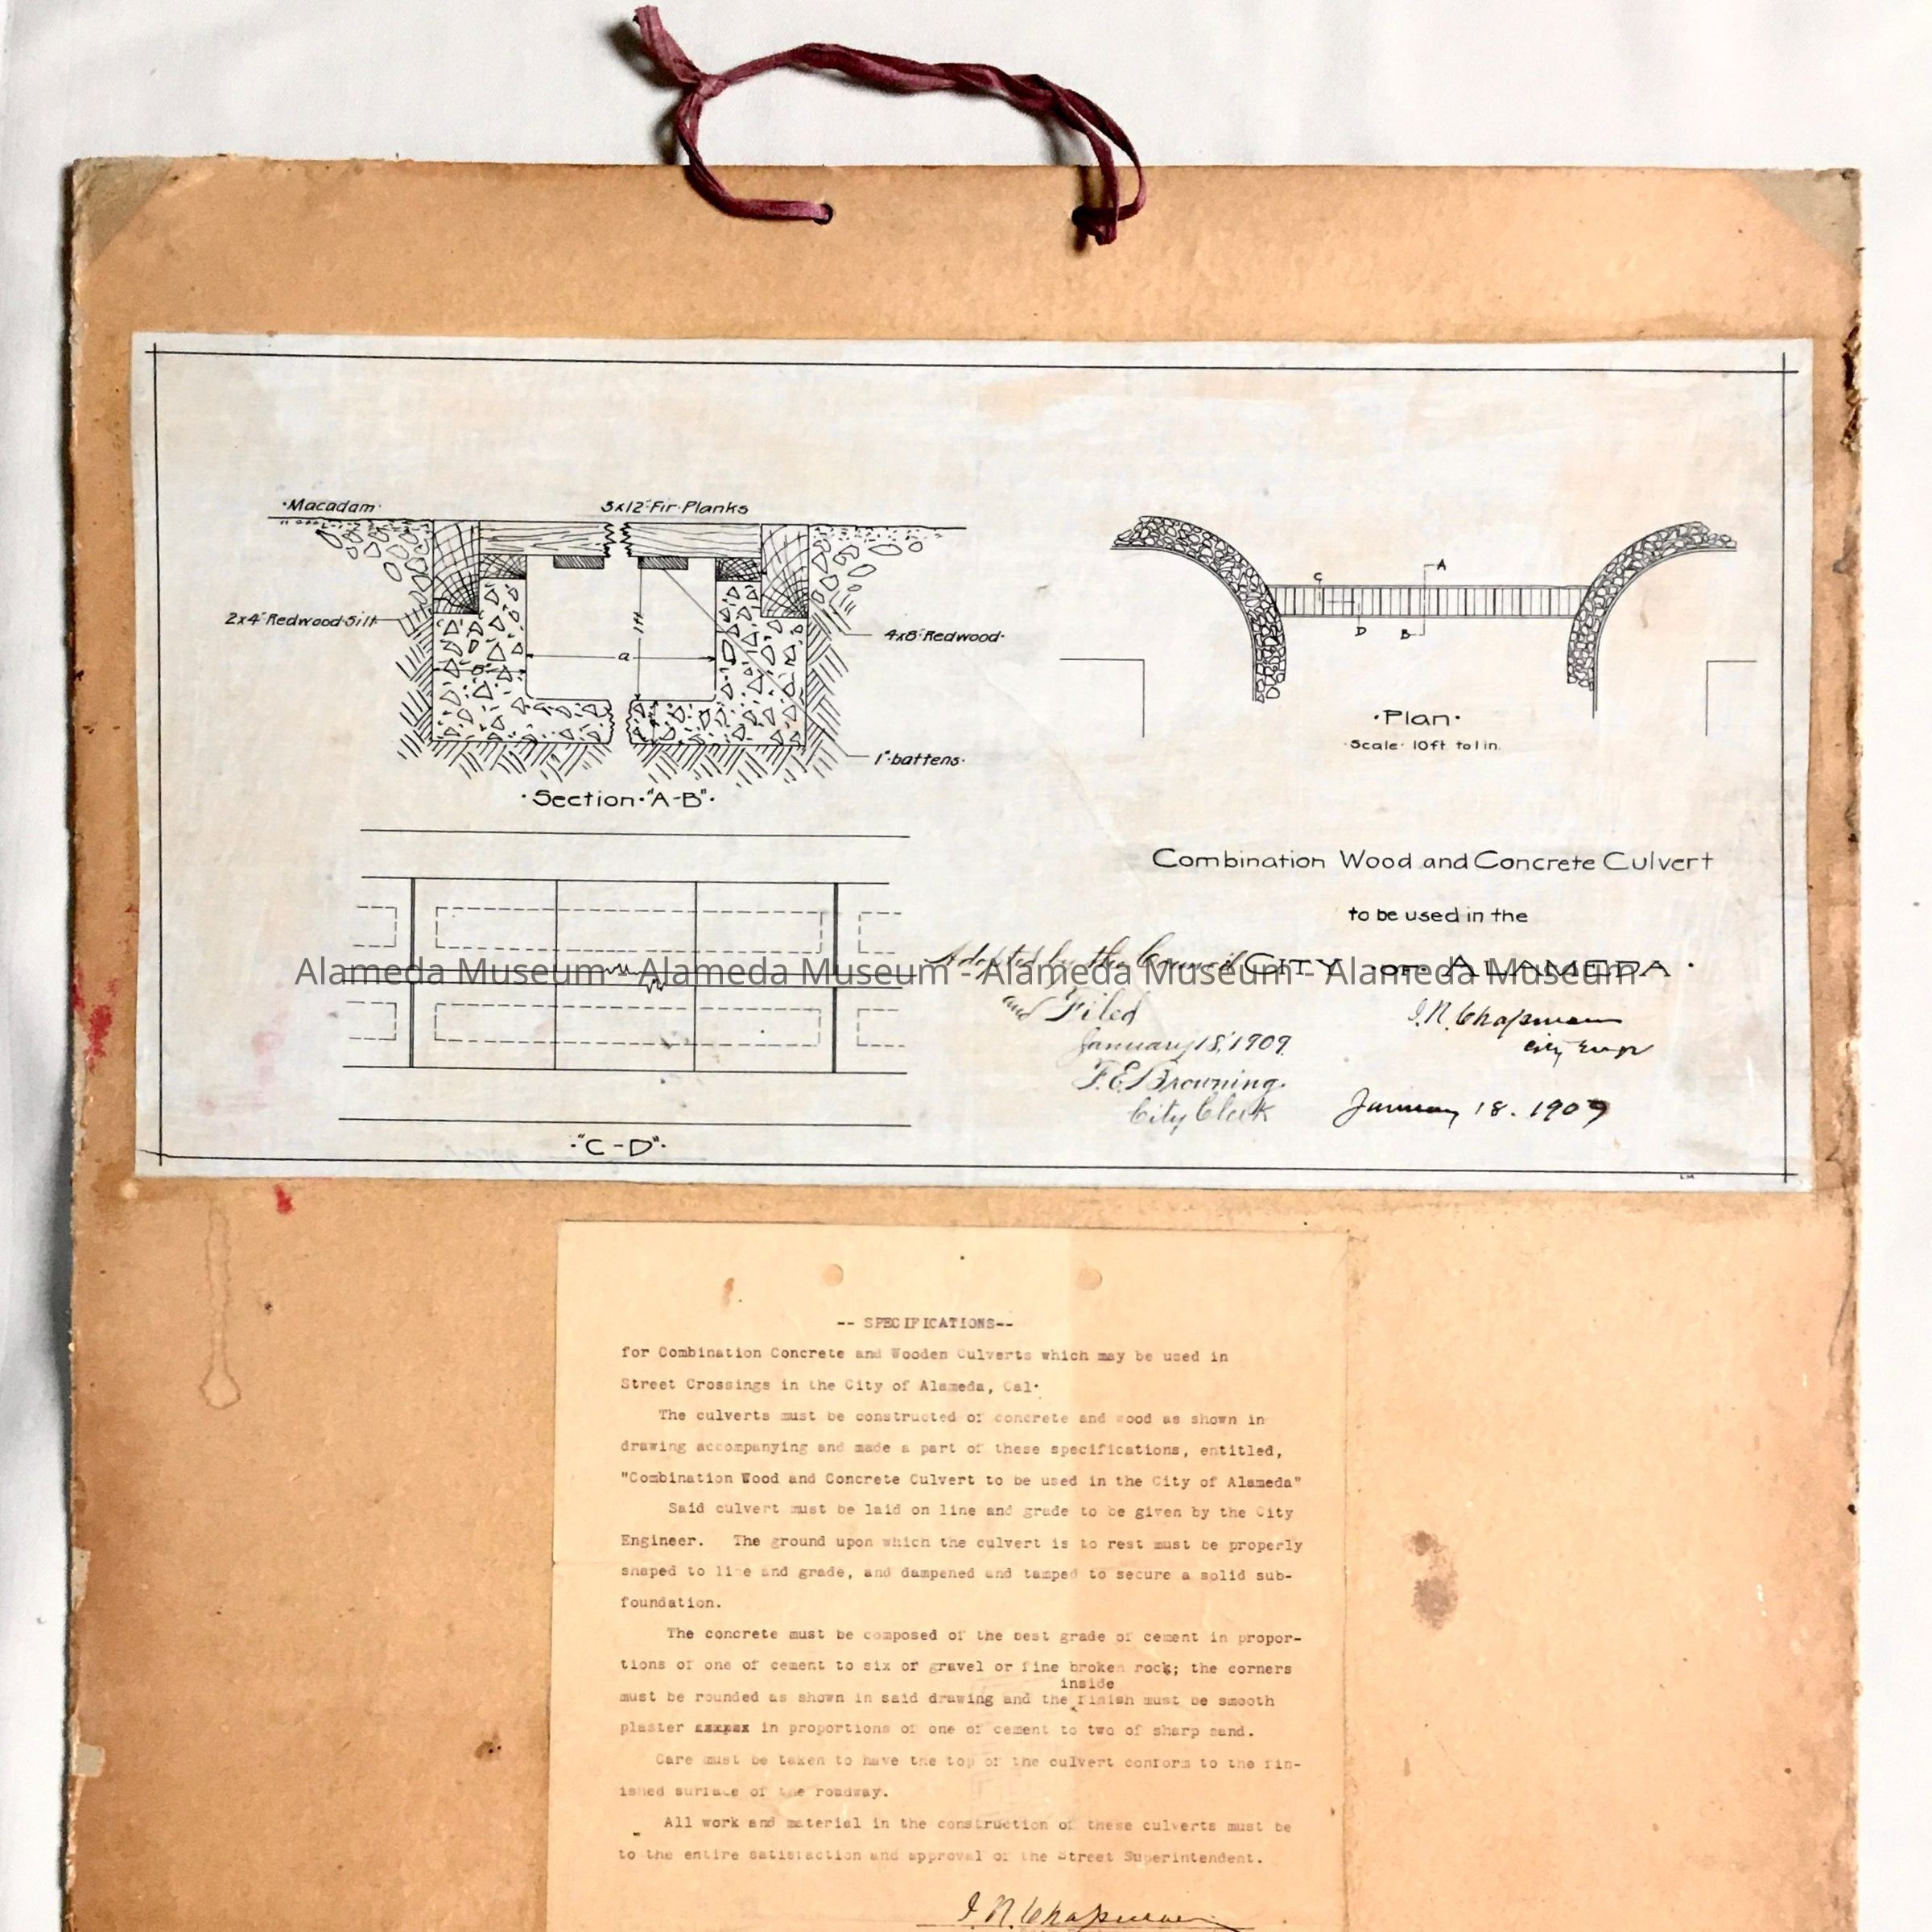 ·Macadam·
3x12"·Fir·Planks
2x4"·Redwood·Silt
4x8"·Redwood·
1 ft
a
1"·battens·
·Section·"A-B"·
C
A
D
B
·Plan·
·Scale· 10ft. to 1 in.
Combination Wood and Concrete Culvert
to be used in the
·CITY ·OF· ALAMEDA·
Adopted by the Council
and Filed
January 18, 1909.
F.E. Browning.
City Clerk
I.N. Chapman
City Engr
January 18. 1909
·"C-D"·
L.M.
Alameda Museum - Alameda Museum - Alameda Museum - Alameda Museum
-- SPECIFICATIONS--
for Combination Concrete and Wooden Culverts which may be used in
Street Crossings in the City of Alameda, Cal.
The culverts must be constructed of concrete and wood as shown in
drawing accompanying and made a part of these specifications, entitled,
"Combination Wood and Concrete Culvert to be used in the City of Alameda"
Said culvert must be laid on line and grade to be given by the City
Engineer. The ground upon which the culvert is to rest must be properly
shaped to line and grade, and dampened and tamped to secure a solid sub-
foundation.
The concrete must be composed of the best grade of cement in propor-
tions of one of cement to six of gravel or fine broken rock; the corners
inside
must be rounded as shown in said drawing and the finish must be smooth
plaster in proportions of one of cement to two of sharp sand.
Care must be taken to have the top of the culvert conform to the fin-
ished surface of the roadway.
All work and material in the construction of these culverts must be
to the entire satisfaction and approval of the Street Superintendent.
I.N. Chapman